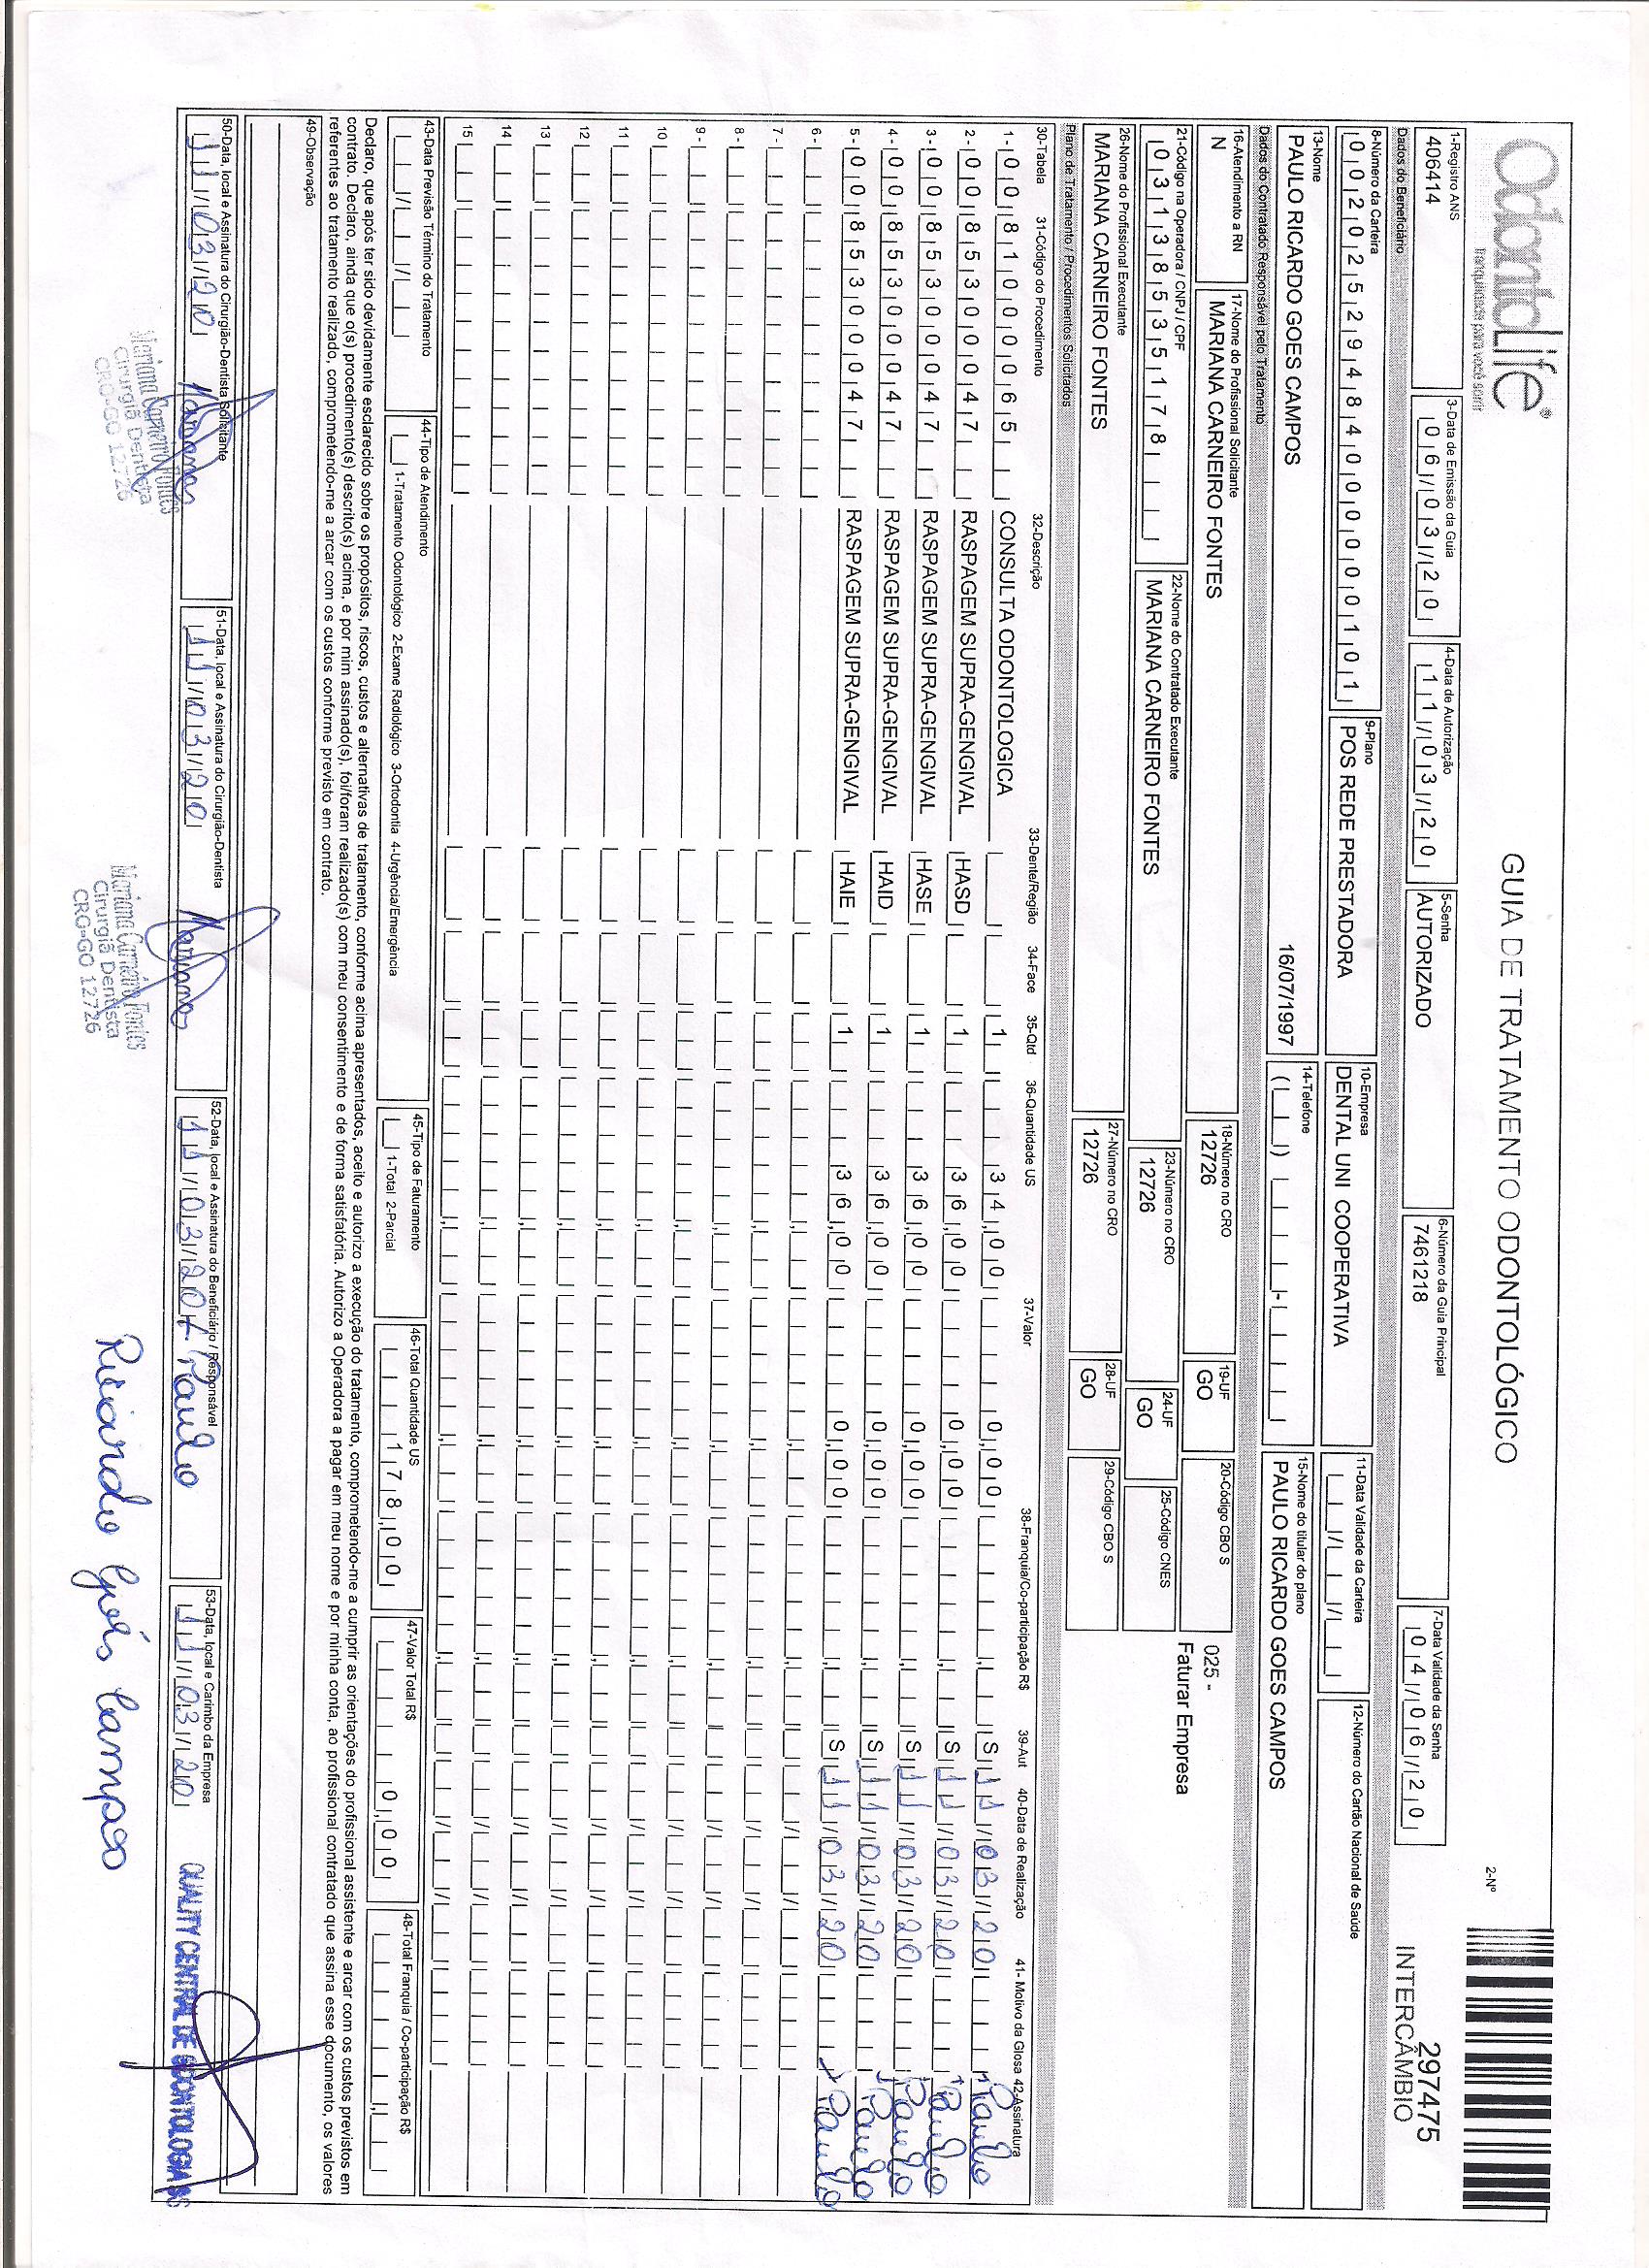 OdontoLife®
tranquilidade para você sorrir
GUIA DE TRATAMENTO ODONTOLÓGICO
2-Nº
297475
INTERCÂMBIO
1-Registro ANS 3-Data de Emissão da Guia 4-Data de Autorização 5-Senha 6-Número da Guia Principal 7-Data Validade da Senha
406414 06/03/20 11/03/20 AUTORIZADO 7461218 04/06/20
Dados do Beneficiário
8-Número da Carteira 9-Plano 10-Empresa 11-Data Validade da Carteira 12-Número do Cartão Nacional de Saúde
00202529484000000101 POS REDE PRESTADORA DENTAL UNI COOPERATIVA
13-Nome 14-Telefone 15-Nome do titular do plano
PAULO RICARDO GOES CAMPOS 16/07/1997 PAULO RICARDO GOES CAMPOS
Dados do Contratado Responsável pelo Tratamento
16-Atendimento a RN 17-Nome do Profissional Solicitante 18-Número no CRO 19-UF 20-Código CBO S
N MARIANA CARNEIRO FONTES 12726 GO
025 -
Faturar Empresa
21-Código na Operadora / CNPJ / CPF 22-Nome do Contratado Executante 23-Número no CRO 24-UF 25-Código CNES
03138535178 MARIANA CARNEIRO FONTES 12726 GO
26-Nome do Profissional Executante 27-Número no CRO 28-UF 29-Código CBO S
MARIANA CARNEIRO FONTES 12726 GO
Plano de Tratamento / Procedimentos Solicitados
30-Tabela 31-Código do Procedimento 32-Descrição 33-Dente/Região 34-Face 35-Qtd 36-Quantidade US 37-Valor 38-Franquia/Co-participação R$ 39-Aut 40-Data de Realização 41- Motivo da Glosa 42-Assinatura
1- 00 81000065 CONSULTA ODONTOLOGICA 1 34,00 0,00 S 11/03/20 Paulo
2- 00 85300047 RASPAGEM SUPRA-GENGIVAL HASD 1 36,00 0,00 S 11/03/20 Paulo
3- 00 85300047 RASPAGEM SUPRA-GENGIVAL HASE 1 36,00 0,00 S 11/03/20 Paulo
4- 00 85300047 RASPAGEM SUPRA-GENGIVAL HAID 1 36,00 0,00 S 11/03/20 Paulo
5- 00 85300047 RASPAGEM SUPRA-GENGIVAL HAIE 1 36,00 0,00 S 11/03/20 Paulo
6-
7-
8-
9-
10
11
12
13
14
15
43-Data Previsão Término do Tratamento 44-Tipo de Atendimento 45-Tipo de Faturamento 46-Total Quantidade US 47-Valor Total R$ 48-Total Franquia / Co-participação R$
1-Tratamento Odontológico 2-Exame Radiológico 3-Ortodontia 4-Urgência/Emergência 1-Total 2-Parcial 178,00 0,00
Declaro, que após ter sido devidamente esclarecido sobre os propósitos, riscos, custos e alternativas de tratamento, conforme acima apresentados, aceito e autorizo a execução do tratamento, comprometendo-me a cumprir as orientações do profissional assistente e arcar com os custos previstos em
contrato. Declaro, ainda que o(s) procedimento(s) descrito(s) acima, e por mim assinado(s), foi/foram realizado(s) com meu consentimento e de forma satisfatória. Autorizo a Operadora a pagar em meu nome e por minha conta, ao profissional contratado que assina esse documento, os valores
referentes ao tratamento realizado, comprometendo-me a arcar com os custos conforme previsto em contrato.
49-Observação
50-Data, local e Assinatura do Cirurgião-Dentista Solicitante 51-Data, local e Assinatura do Cirurgião-Dentista 52-Data, local e Assinatura do Beneficiário / Responsável 53-Data, local e Carimbo da Empresa
11/03/20 Mariana 11/03/20 Mariana 11/03/20 Paulo 11/03/20 QUALITY CENTRAL DE ODONTOLOGIA
Ricardo Goés Campos
Mariana Carneiro Fontes
Cirurgiã Dentista
CRO-GO 12726
Mariana Carneiro Fontes
Cirurgiã Dentista
CRO-GO 12726